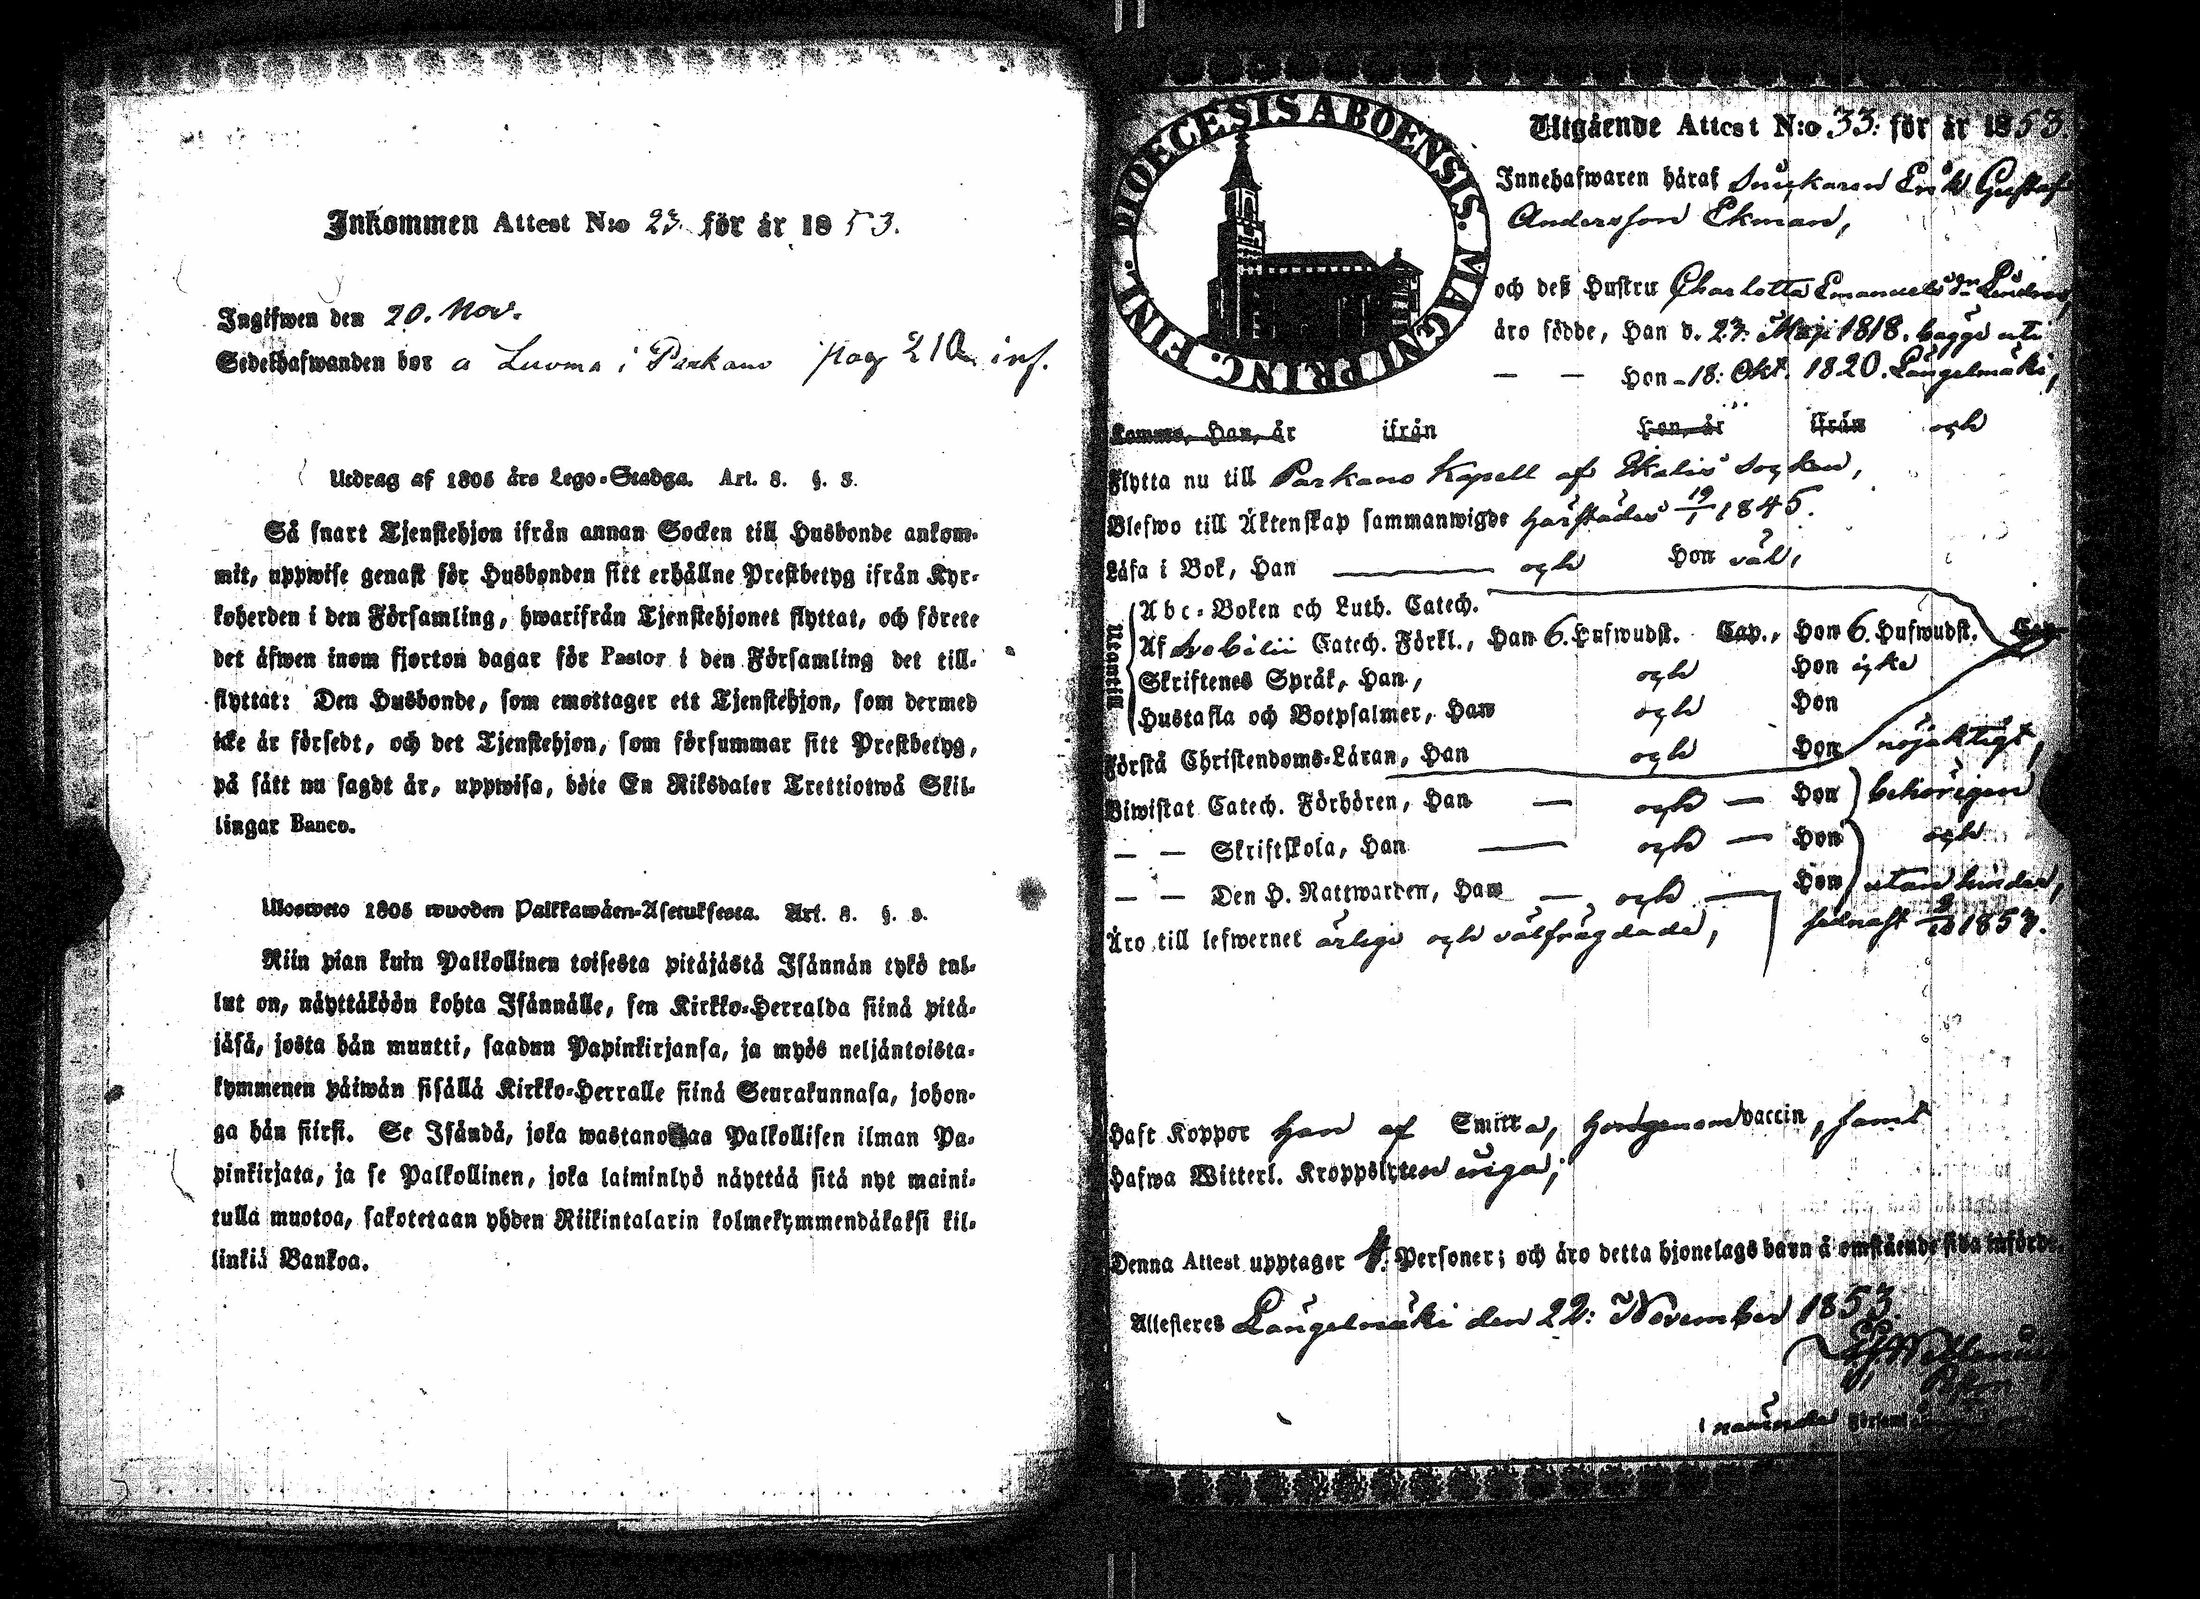 Inkommen Attest N:o 23. för år 1853.
Ingifwen den 20. Nov.
Sedelhafwanden bor a Luoma i Parkano pag 210 inf.
Utdrag af 1805 års Lego-Stadga. Art. 3. §. 3.
Så snart Tjenstehjon ifrån annan Socken till Husbonde ankom-
mit, uppwise genast för Husbonden sitt erhållne Prestbetyg ifrån Kyr-
koherden i den Församling, hwarifrån Tjenstehjonet flyttat, och förete
det äfwen inom fjorton dagar för Pastor i den Församling det till-
flyttat: Den Husbonde, som emottager ett Tjenstehjon, som dermed
icke är försedt, och det Tjenstehjon, som försummar sitt Prestbetyg,
på sätt nu sagdt är, uppwisa, böte En Riksdaler Trettiotwå Skil-
lingar Banco.
Ulosweto 1805 wuoden Palkkawäen-Asetuksesta. Art. 3. §. 3.
Niin pian kuin Palkollinen toisesta pitäjästä Isännän tykö tul-
lut on, näyttäköön kohta Isännälle, sen Kirkko-Herralda siinä pitä-
jäsä, josta hän muutti, saadun Papinkirjansa, ja myös neljäntoista-
kymmenen päiwän sisällä Kirkko-Herralle siinä Seurakunnasa, johon-
ga hän siirsi. Se Isändä, joka wastanottaa Palkollisen ilman Pa-
pinkirjata, ja se Palkollinen, joka laiminlyö näyttää sitä nyt maini-
tulla muotoa, sakotetaan yhden Riikintalarin kolmekymmendäkaksi kil-
linkiä Bankoa.
DIOECESIS ABOENSIS. MAGNI PRINC. FINL.
Utgående Attest N:o 33: för år 1853
Innehafwaren häraf Snickaren Erik Gustaf
Andersson Ekman,
och deß Hustru Charlotta Emanuelsdr
äro födde, Han d. 27. Maji 1818. bägge uti
— — Hon - 18: Okt. 1820. Längelmäki,
Komme, Han, år ifrån Hon, år ifrån och
Flytta nu till Parkano Kapell af Ikalis socken,
Blefwo till Äktenskap sammanwigde härstädes 19/1 1845.
Läsa i Bok, Han — och Hon väl,
Utantill
Abc-Boken och Luth. Catech.
Af Svebilii Catech. Förkl., Han 6. Hufwudst. Cap., Hon 6. Hufwudst. Cap.
Skriftenes Språk, Han, och Hon icke
Hustafla och Botpsalmer, Han och Hon
Förstå Christendoms-Läran, Han och Hon nöjaktigt,
Biwistat Catech. Förhören, Han — och — Hon behörigen
— — Skriftskola, Han — och — Hon och
— — Den H. Nattwarden, Han — och — Hon utan hinder,
Äro till lefwernet ärlige och välfrägdade, sednast 1853.
Haft Koppor Han af Smitta, Hon genom vaccin, samt
Hafwa Witterl. Kroppslyten inga;
Denna Attest upptager 4. Personer; och äro detta hjonelags barn å omstående sida införde.
Attesteres Längelmäki den 22: November 1853.